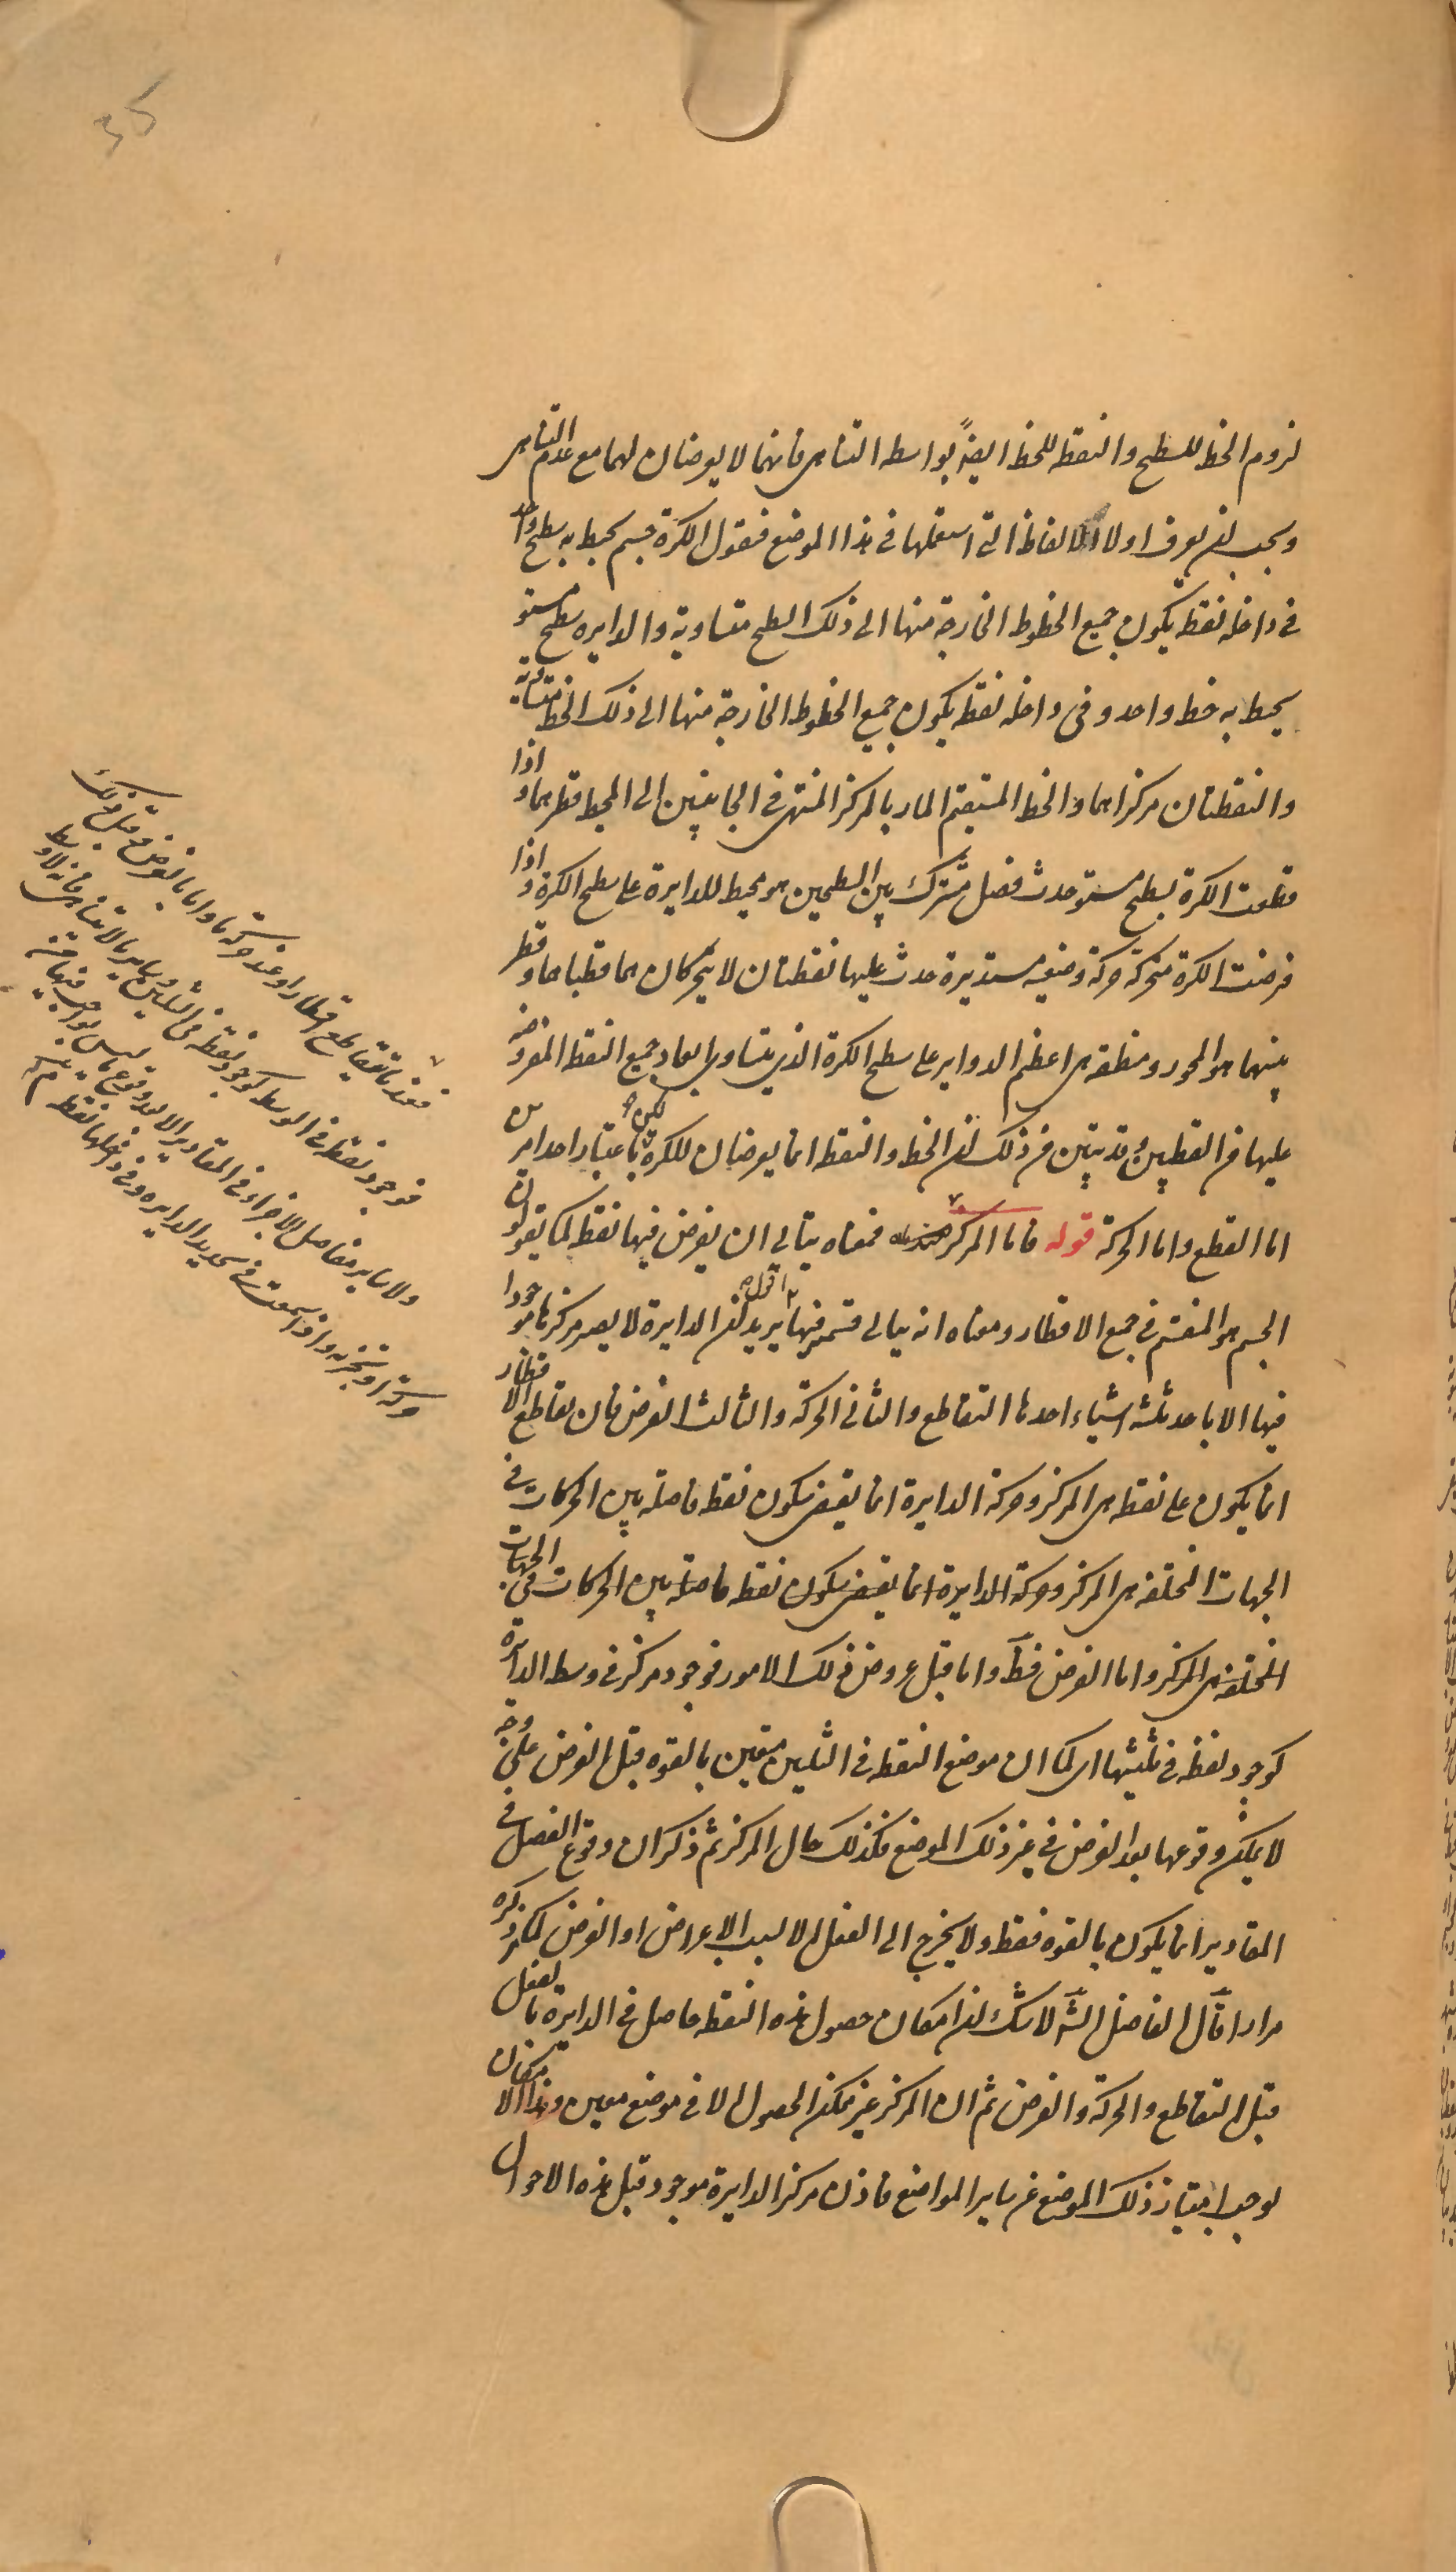 35
لزوم الخط للسطح والنقطه للخط ايضاً بواسطه التناهى فانهما لا يعرضان لهما مع عدم التناهى
ويجب ان يعرف اولا الالفاظ التى استعملها فى هذا الموضع فنقول الكرة جسم يحيط به سطح واحد
فى داخله نقطة يكون جميع الخطوط الخارجة منها الى ذلك السطح متساوية والدايره سطح مستو
يحيط به خط واحد وفى داخله نقطة يكون جميع الخطوط الخارجة منها الى ذلك الخط متساوية
والنقطتان مركزاهما والخط المستقيم المار بالمركز المنتهى فى الجانبين الى المحيط قطرهما واذا
قطعت الكرة بسطح مستو حدث فصل مشترك بين السطحين هو محيط للدايرة على سطح الكرة واذا
فرضت الكرة متحركة حركة وضعيه مستديرة حدث عليها نقطتان لا يتحركان هما قطباها وقطر
بينهما هو المحور ومنطقه هى اعظم الدواير على سطح الكرة الذى يتساوى ابعاد جميع النقط المفروضه
عليها من القطبين وقد تبين من ذلك ان الخط والنقط انما يعرضان للكرة باعتبار احد امرين
اما القطع واما الحركة قوله فاما المركز فمعناه يتأتى ان يفرض فيها نقطة كما يقولون
الجسم هو المنقسم فى جميع الاقطار ومعناه انه يتأتى قسمته فيها اقول يريد ان الدايرة لا يصير مركزها موجودا
فيها الا باحد ثلثه اشياء احدها التقاطع والثانى الحركة والثالث الفرض فان تقاطع الاقطار
انما يكون على نقطه هى المركز وحركة الدايرة انما يقتضى سكون نقطه فاصلة بين الحركات فى
الجهات المختلفه هى المركز وحركة الدايرة انما يقتضى سكون نقطه فاصلة بين الحركات فى الجهات
المختلفه هى المركز واما الفرض فظ واما قبل عروض ذلك الامور فوجود مركز فى وسط الدايرة
كوجود نقطه فى ثلثيها اى كما ان موضع النقطه فى الثلثين متعين بالقوه قبل الفرض على وجه
لا يمكن وقوعها بعد الفرض فى غير ذلك الموضع فكذلك حال المركز ثم ذكر ان وقوع الفصل فى
المقادير انما يكون بالقوه فقط ولا يخرج الى الفعل الا لسبب الاعراض او الفرض كما مر ذكره
مرارا قال الفاضل الش لا شك ان امكان حصول هذه النقطه حاصل فى الدايرة بالفعل
قبل التقاطع والحركة والفرض ثم ان المركز غير ممكن الحصول الا فى موضع معين وهذا الامكان
يوجب امتياز ذلك الموضع عن ساير المواضع فاذن مركز الدايرة موجود قبل هذه الاحوال
فعند ما يتقاطع اقطار او عند حركة ما او اما بالفرض وقبل ذلك
فوجود نقطة فى الوسط كوجود نقطه فى الثلثين وساير ما لا يتناهى فانه لا وسط
ولا ساير مفاصل الاجزاء فى المقادير الا بعد وقوع ما ليس بواجب فيها من
حركة او تجزيه واذا سمعت فى تحديد الدايره وفى داخلها نقطه